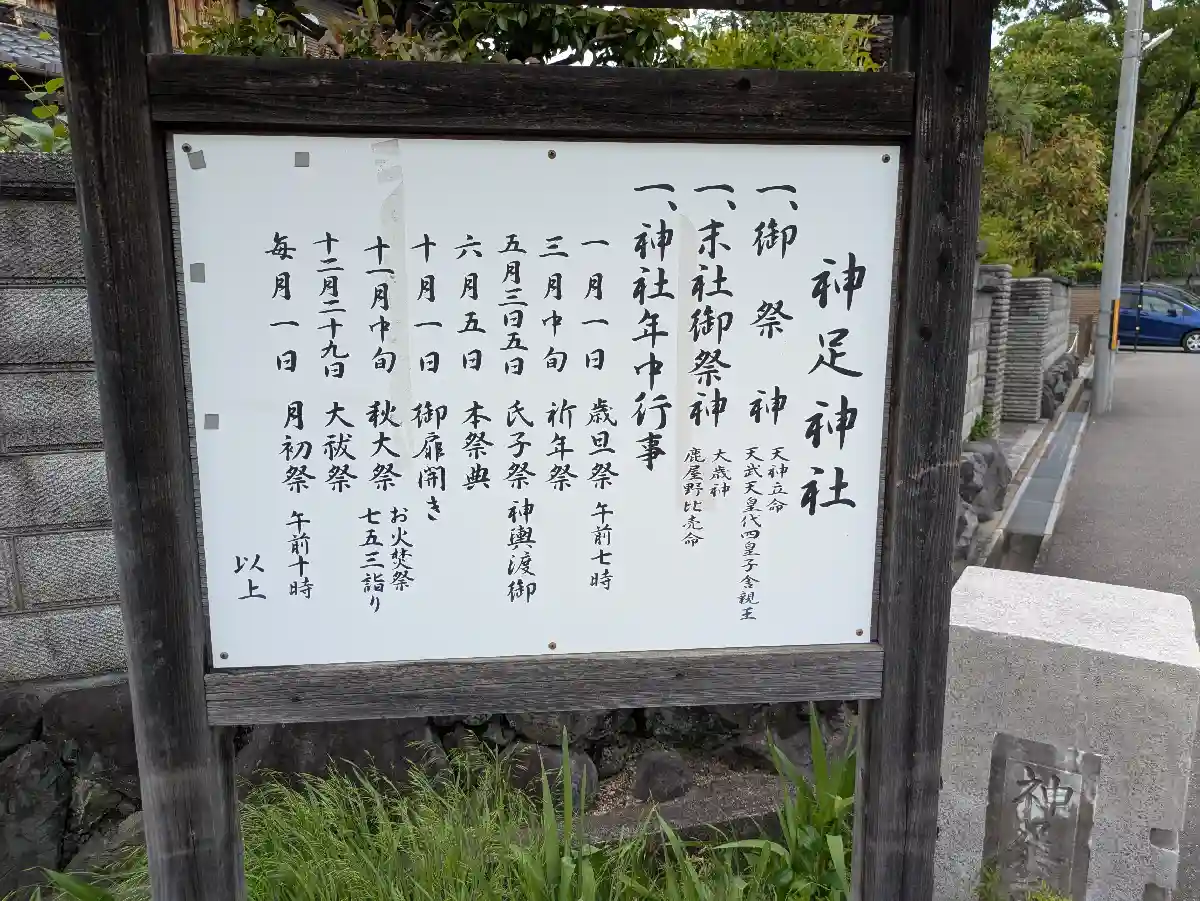 神足神社
一、御祭神
天神立命
天武天皇代四皇子舎親王
一、末社御祭神
大歳神
鹿屋野比売命
一、神社年中行事
一月一日 歳旦祭 午前七時
三月中旬 祈年祭
五月三日五日 氏子祭 神輿渡御
六月五日 本祭典
十月一日 御扉開き
十一月中旬 秋大祭 お火焚祭
七五三詣り
十二月二十九日 大祓祭
毎月一日 月初祭 午前十時
以上
神足